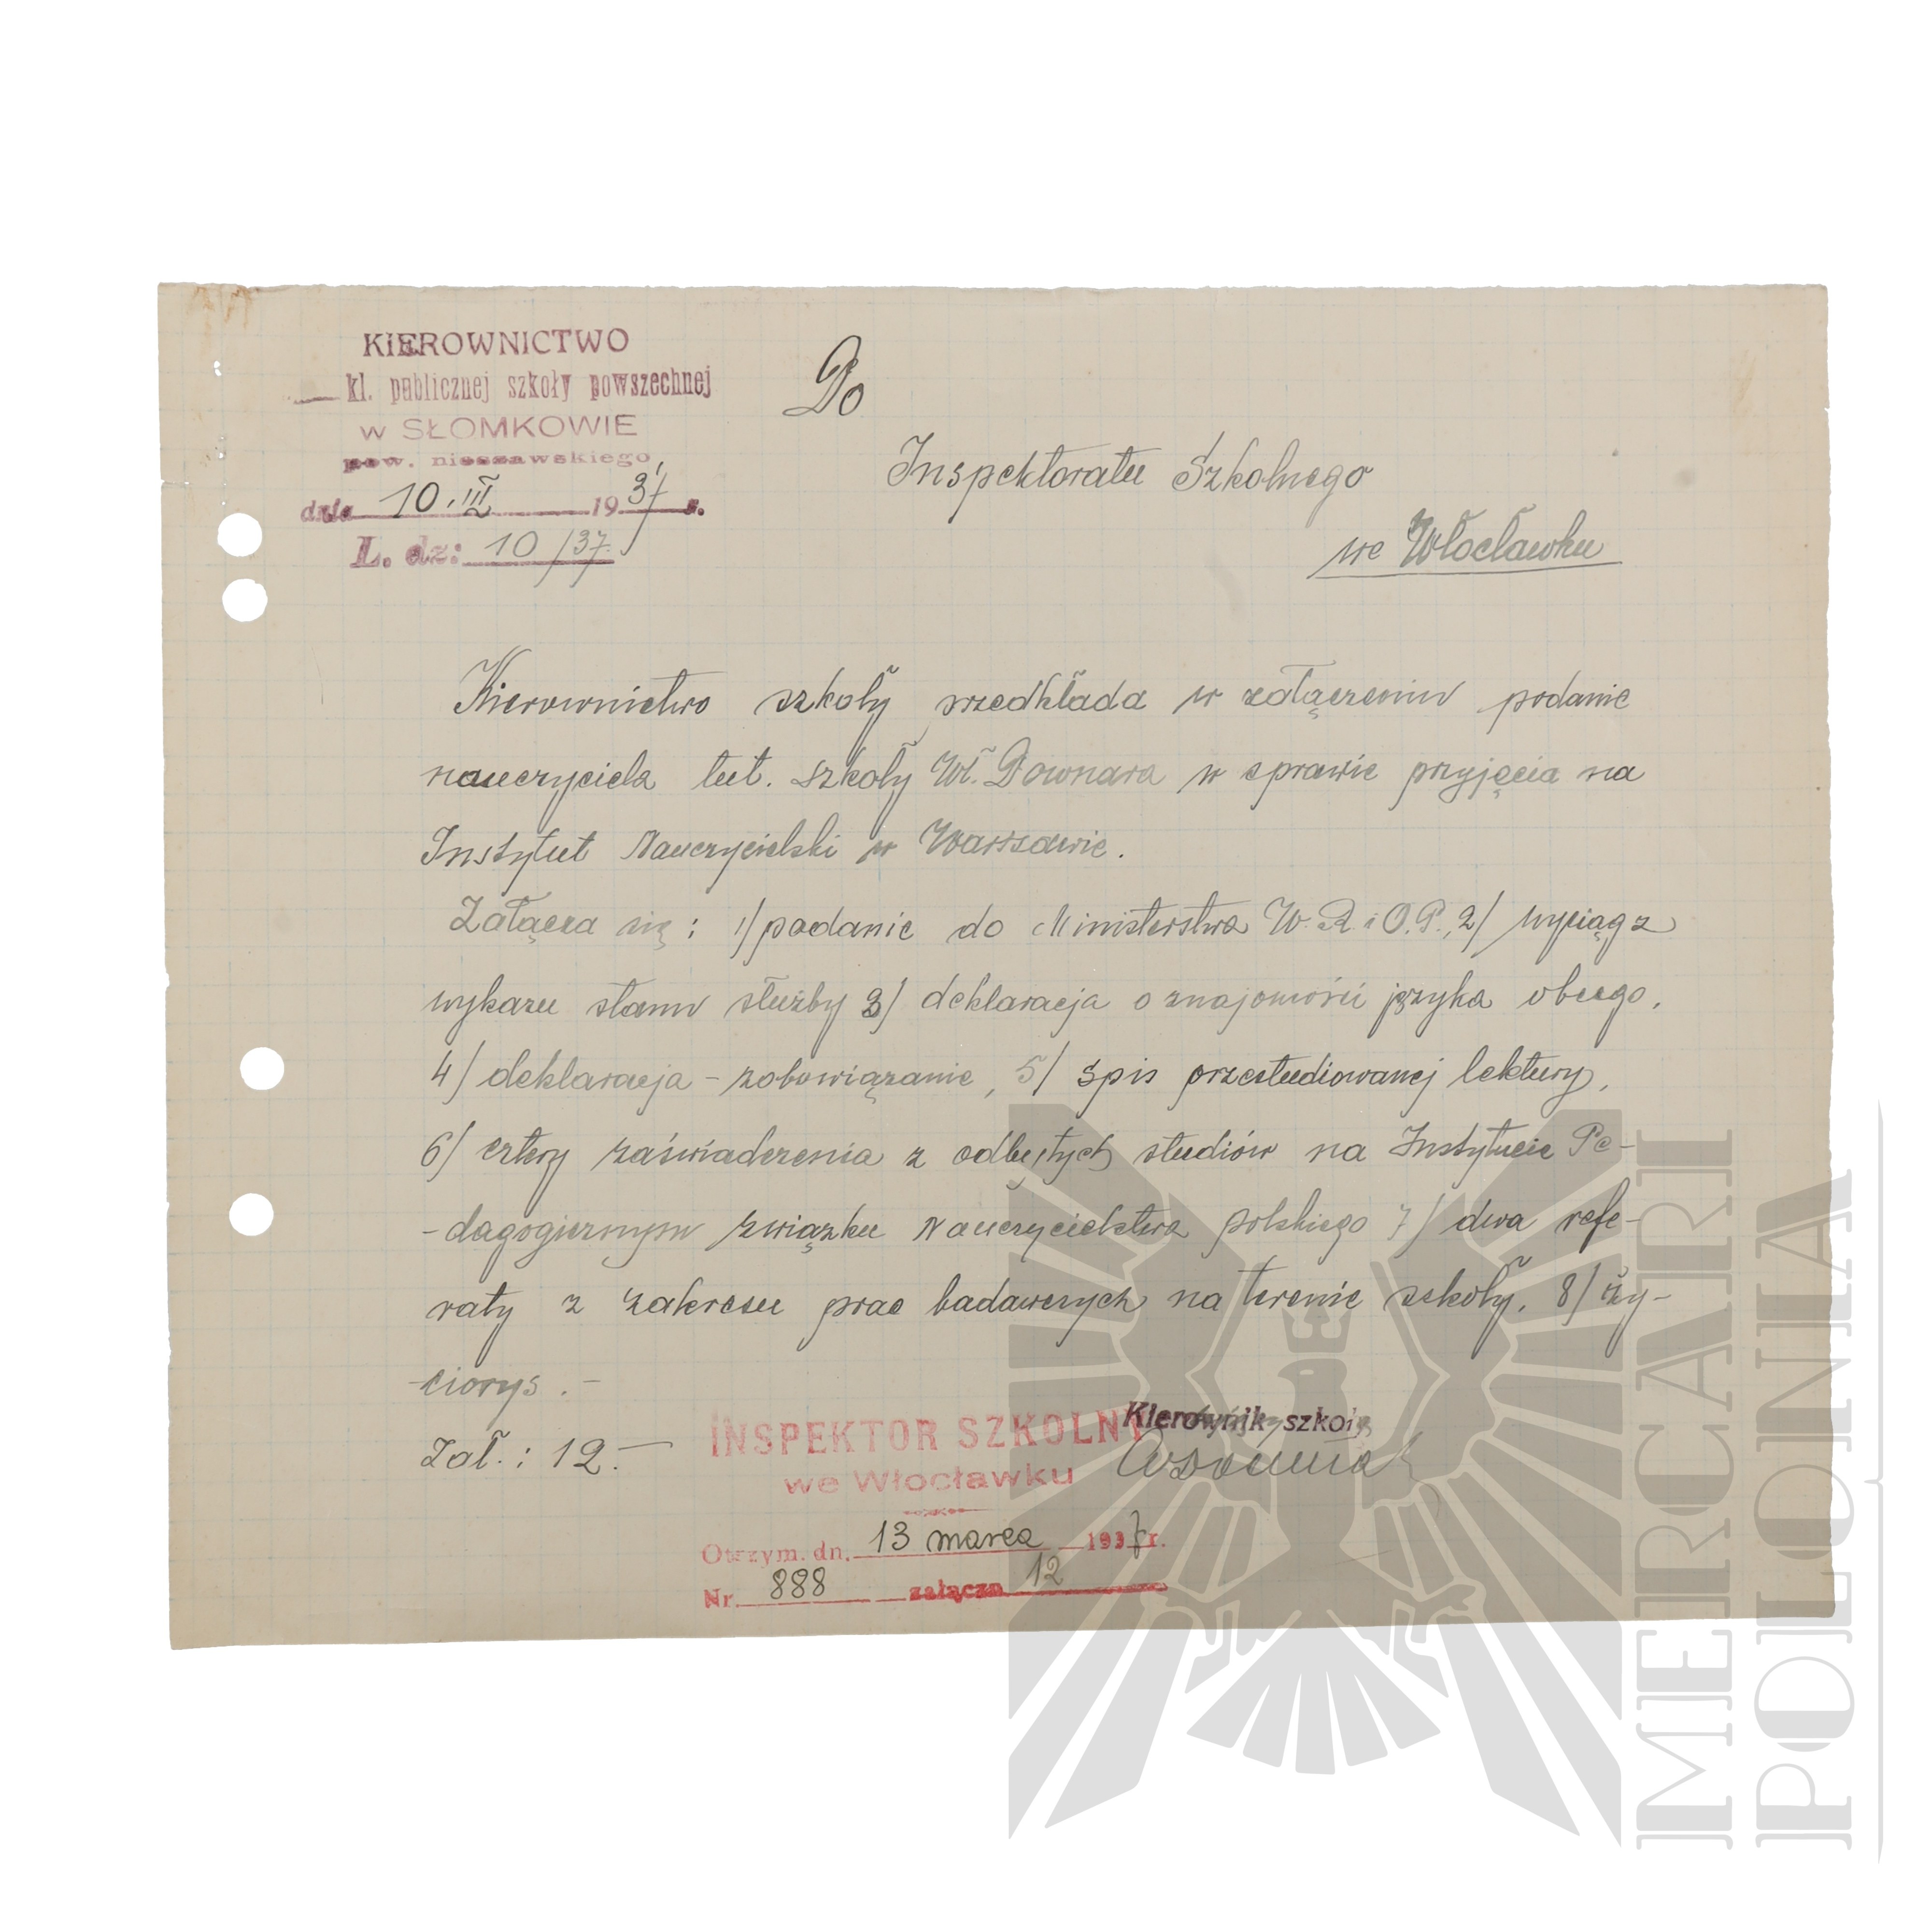 KIEROWNICTWO
kl. publicznej szkoły powszechnej
w SŁOMKOWIE
pow. nieszawskiego
dnia 10.III 1937 r.
L. dz: 10/37.
Do
Inspektoratu Szkolnego
we Włocławku
Kierownictwo szkoły przedkłada w załączeniu podanie
nauczyciela tut. szkoły Wł. Downara w sprawie przyjęcia na
Instytut Nauczycielski w Warszawie.
Załącza się: 1/ podanie do Ministerstwa W. R. i O. P., 2/ wyciąg z
wykazu stanu służby 3/ deklaracja o znajomości języka obcego,
4/ deklaracja - zobowiązanie, 5/ spis przestudiowanej lektury,
6/ cztery zaświadczenia z odbytych studiów na Instytucie Pe-
-dagogicznym Związku Nauczycielstwa polskiego 7/ dwa refe-
raty z zakresu prac badawczych na terenie szkoły, 8/ ży-
-ciorys.-
Zał.: 12.-
Kierownik szkoły
INSPEKTOR SZKOLNY
we Włocławku
Otrzym. dn. 13 marca 1937 r.
Nr. 888 załączn 12
MERCARI
POLONIA